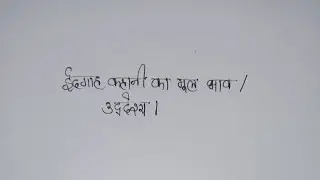 ईदगाह कहानी का मूल भाव /
उद्देश्य ।